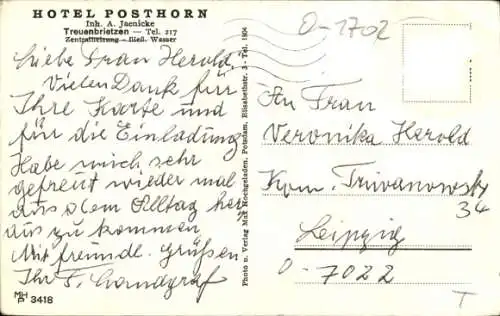 HOTEL POSTHORN
Inh. A. Jaenicke
Treuenbrietzen — Tel. 217
Zentralheizung - fließ. Wasser
Liebe Frau Herold,
Vielen Dank für
Ihre Karte und
für die Einladung
Habe mich sehr
gefreut wieder mal
aus dem Alltag her
aus zu kommen
Mit freundl. Grüßen
Ihr F. Landgraf
MH
P 3418
Photo u. Verlag Max Hochgeladen, Potsdam, Elisabethstr. 3 - Tel. 1804
O-1702
An Frau
Veronika Herold
Kom. Triwanowsky
34
Leipzig
O-7022
T